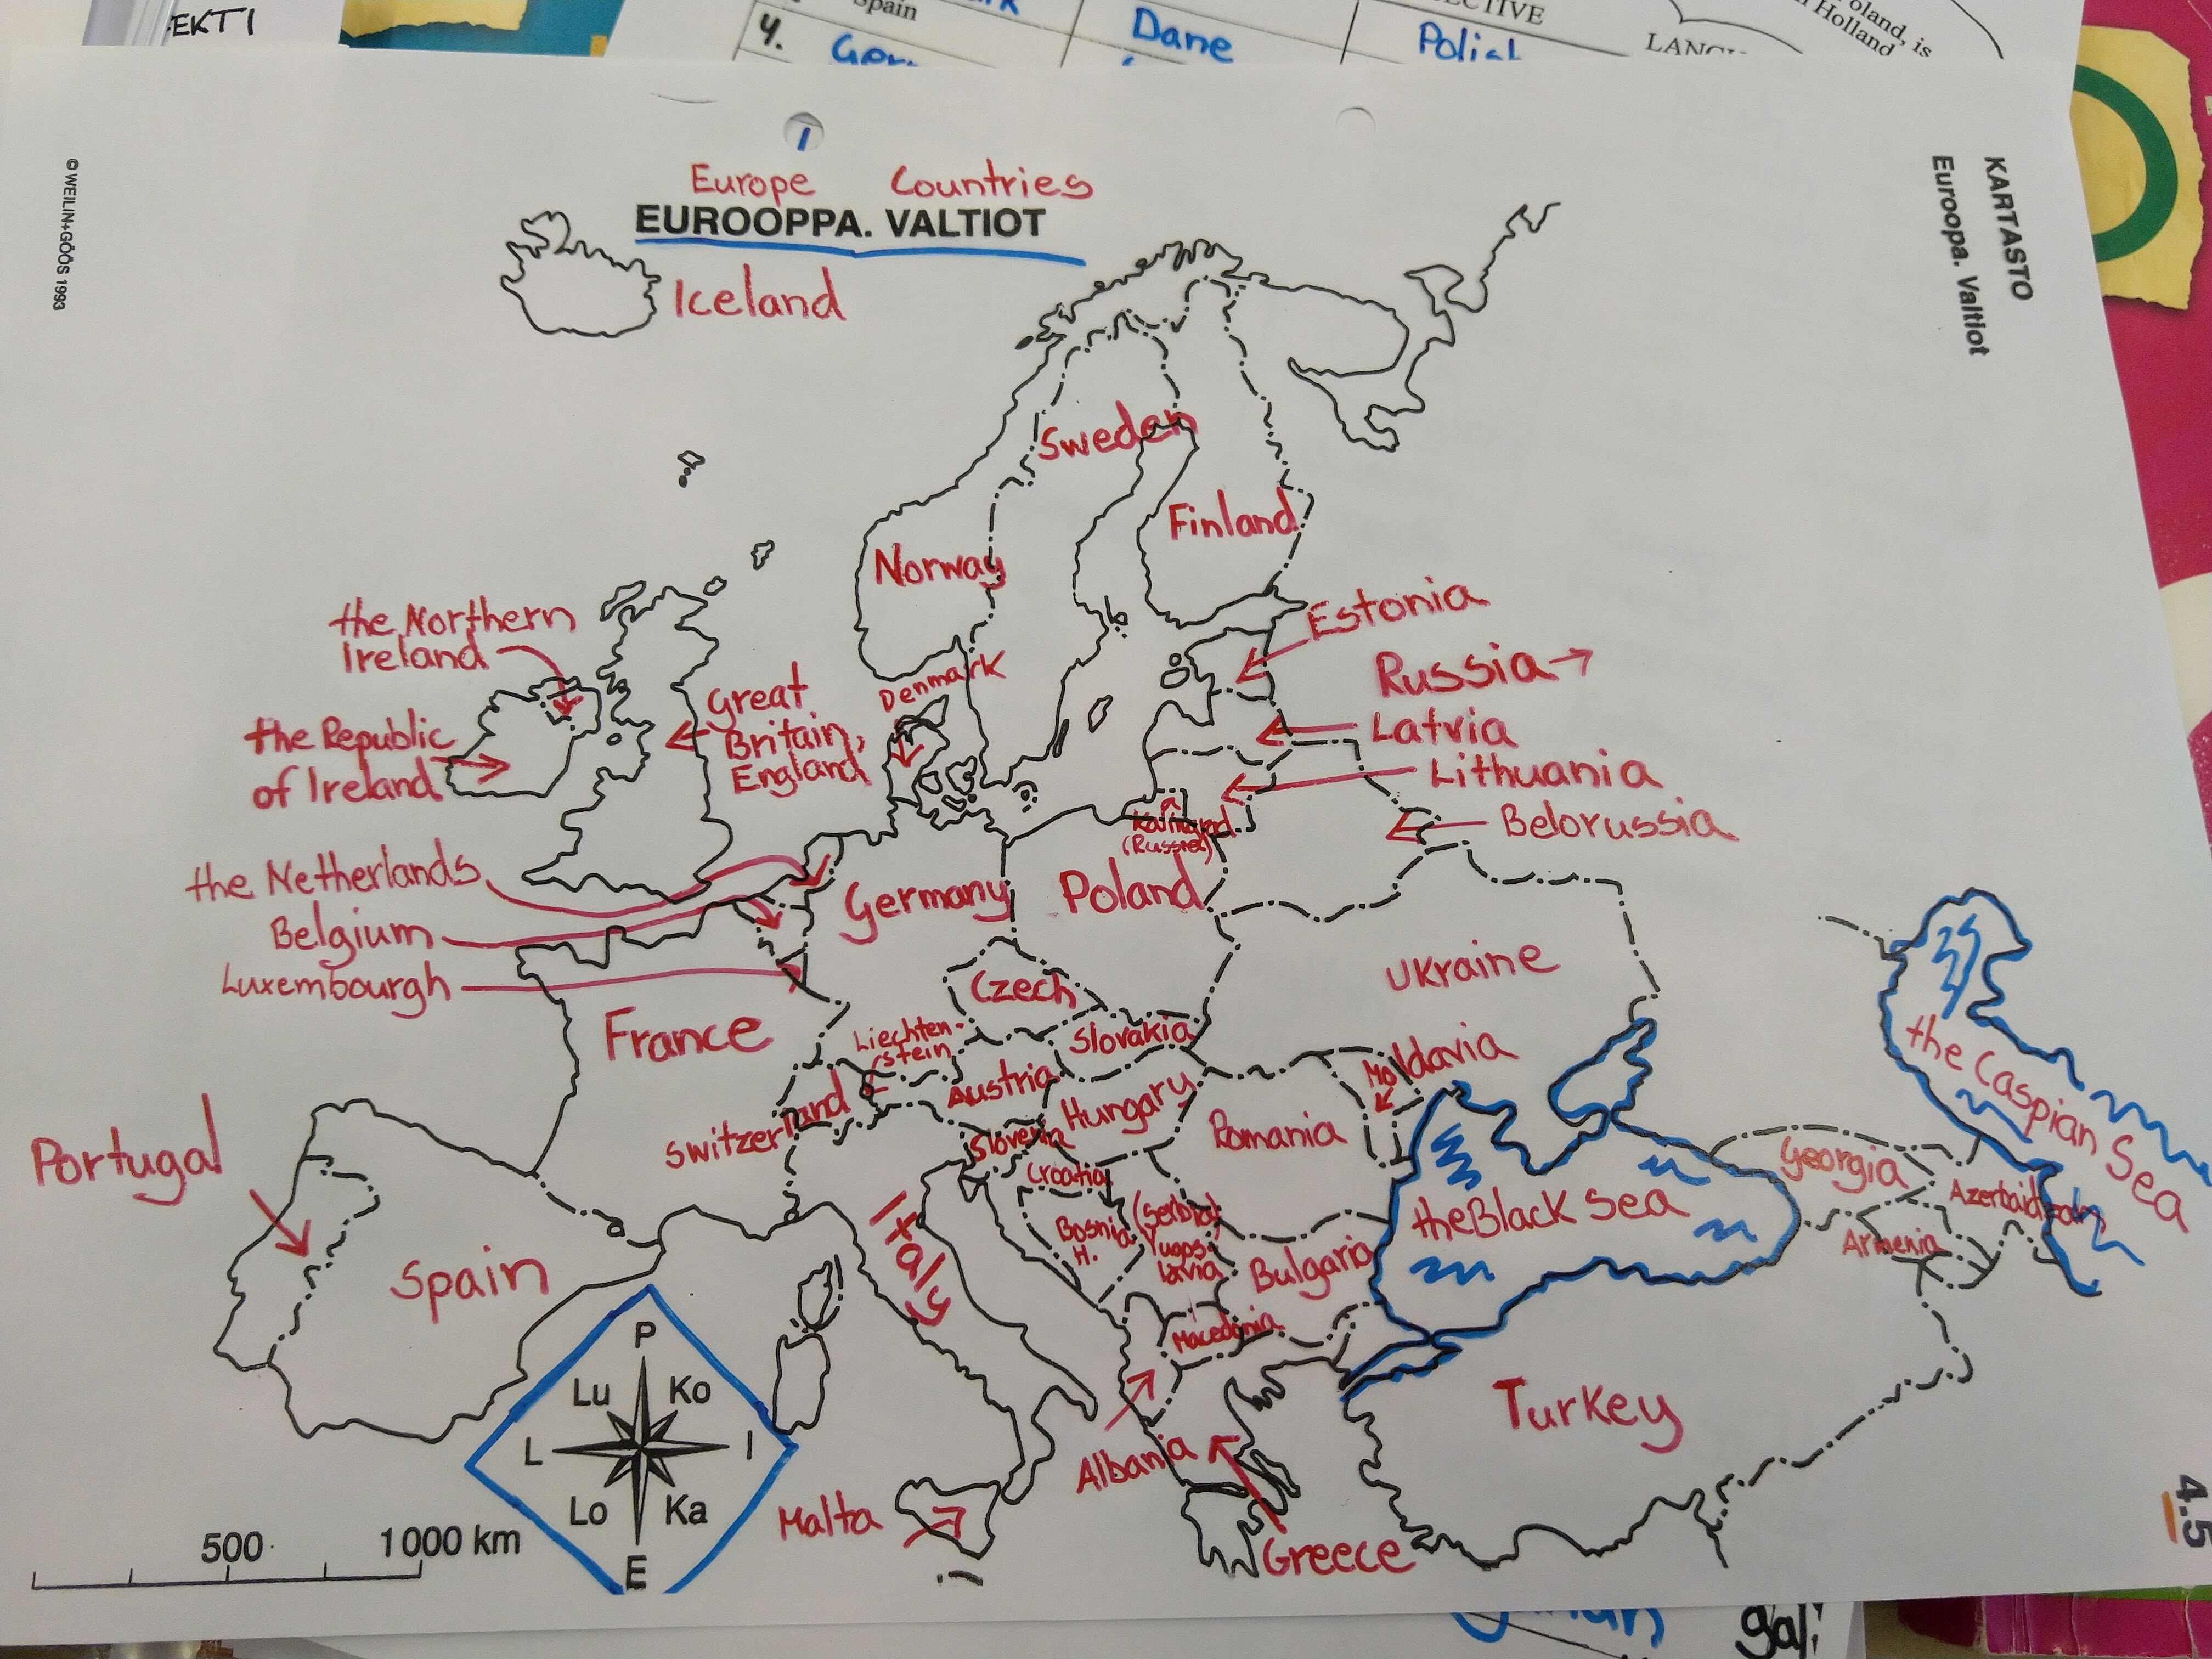 EKTI
Spain
4.
Ger
Dane
Polish
Holland
is
© WEILIN+GÖÖS 1993
1
Europe Countries
EUROOPPA. VALTIOT
KARTASTO
Euroopa. Valtiot
Iceland
Sweden
Finland
Norway
Estonia
the Northern
Ireland
Russia→
Denmark
Great
Britain,
England
Latvia
the Republic
of Ireland
Lithuania
Belorussia
(Russia)
the Netherlands
Germany
Poland
Belgium
Luxembourgh
Ukraine
Czech
France
Slovakia
Liechten-
stein
Moldavia
the Caspian Sea
Austria
Hungary
Switzerland
Romania
Slovenia
Portugal
Croatia
Georgia
the Black Sea
(Serbia)
Bosnia
H.
Italy
Armenia
Spain
Bulgaria
Macedonia
P
Lu
Ko
L
I
Lo
Ka
E
Turkey
Albania
Malta
Greece
500
1000 km
4.5
gal